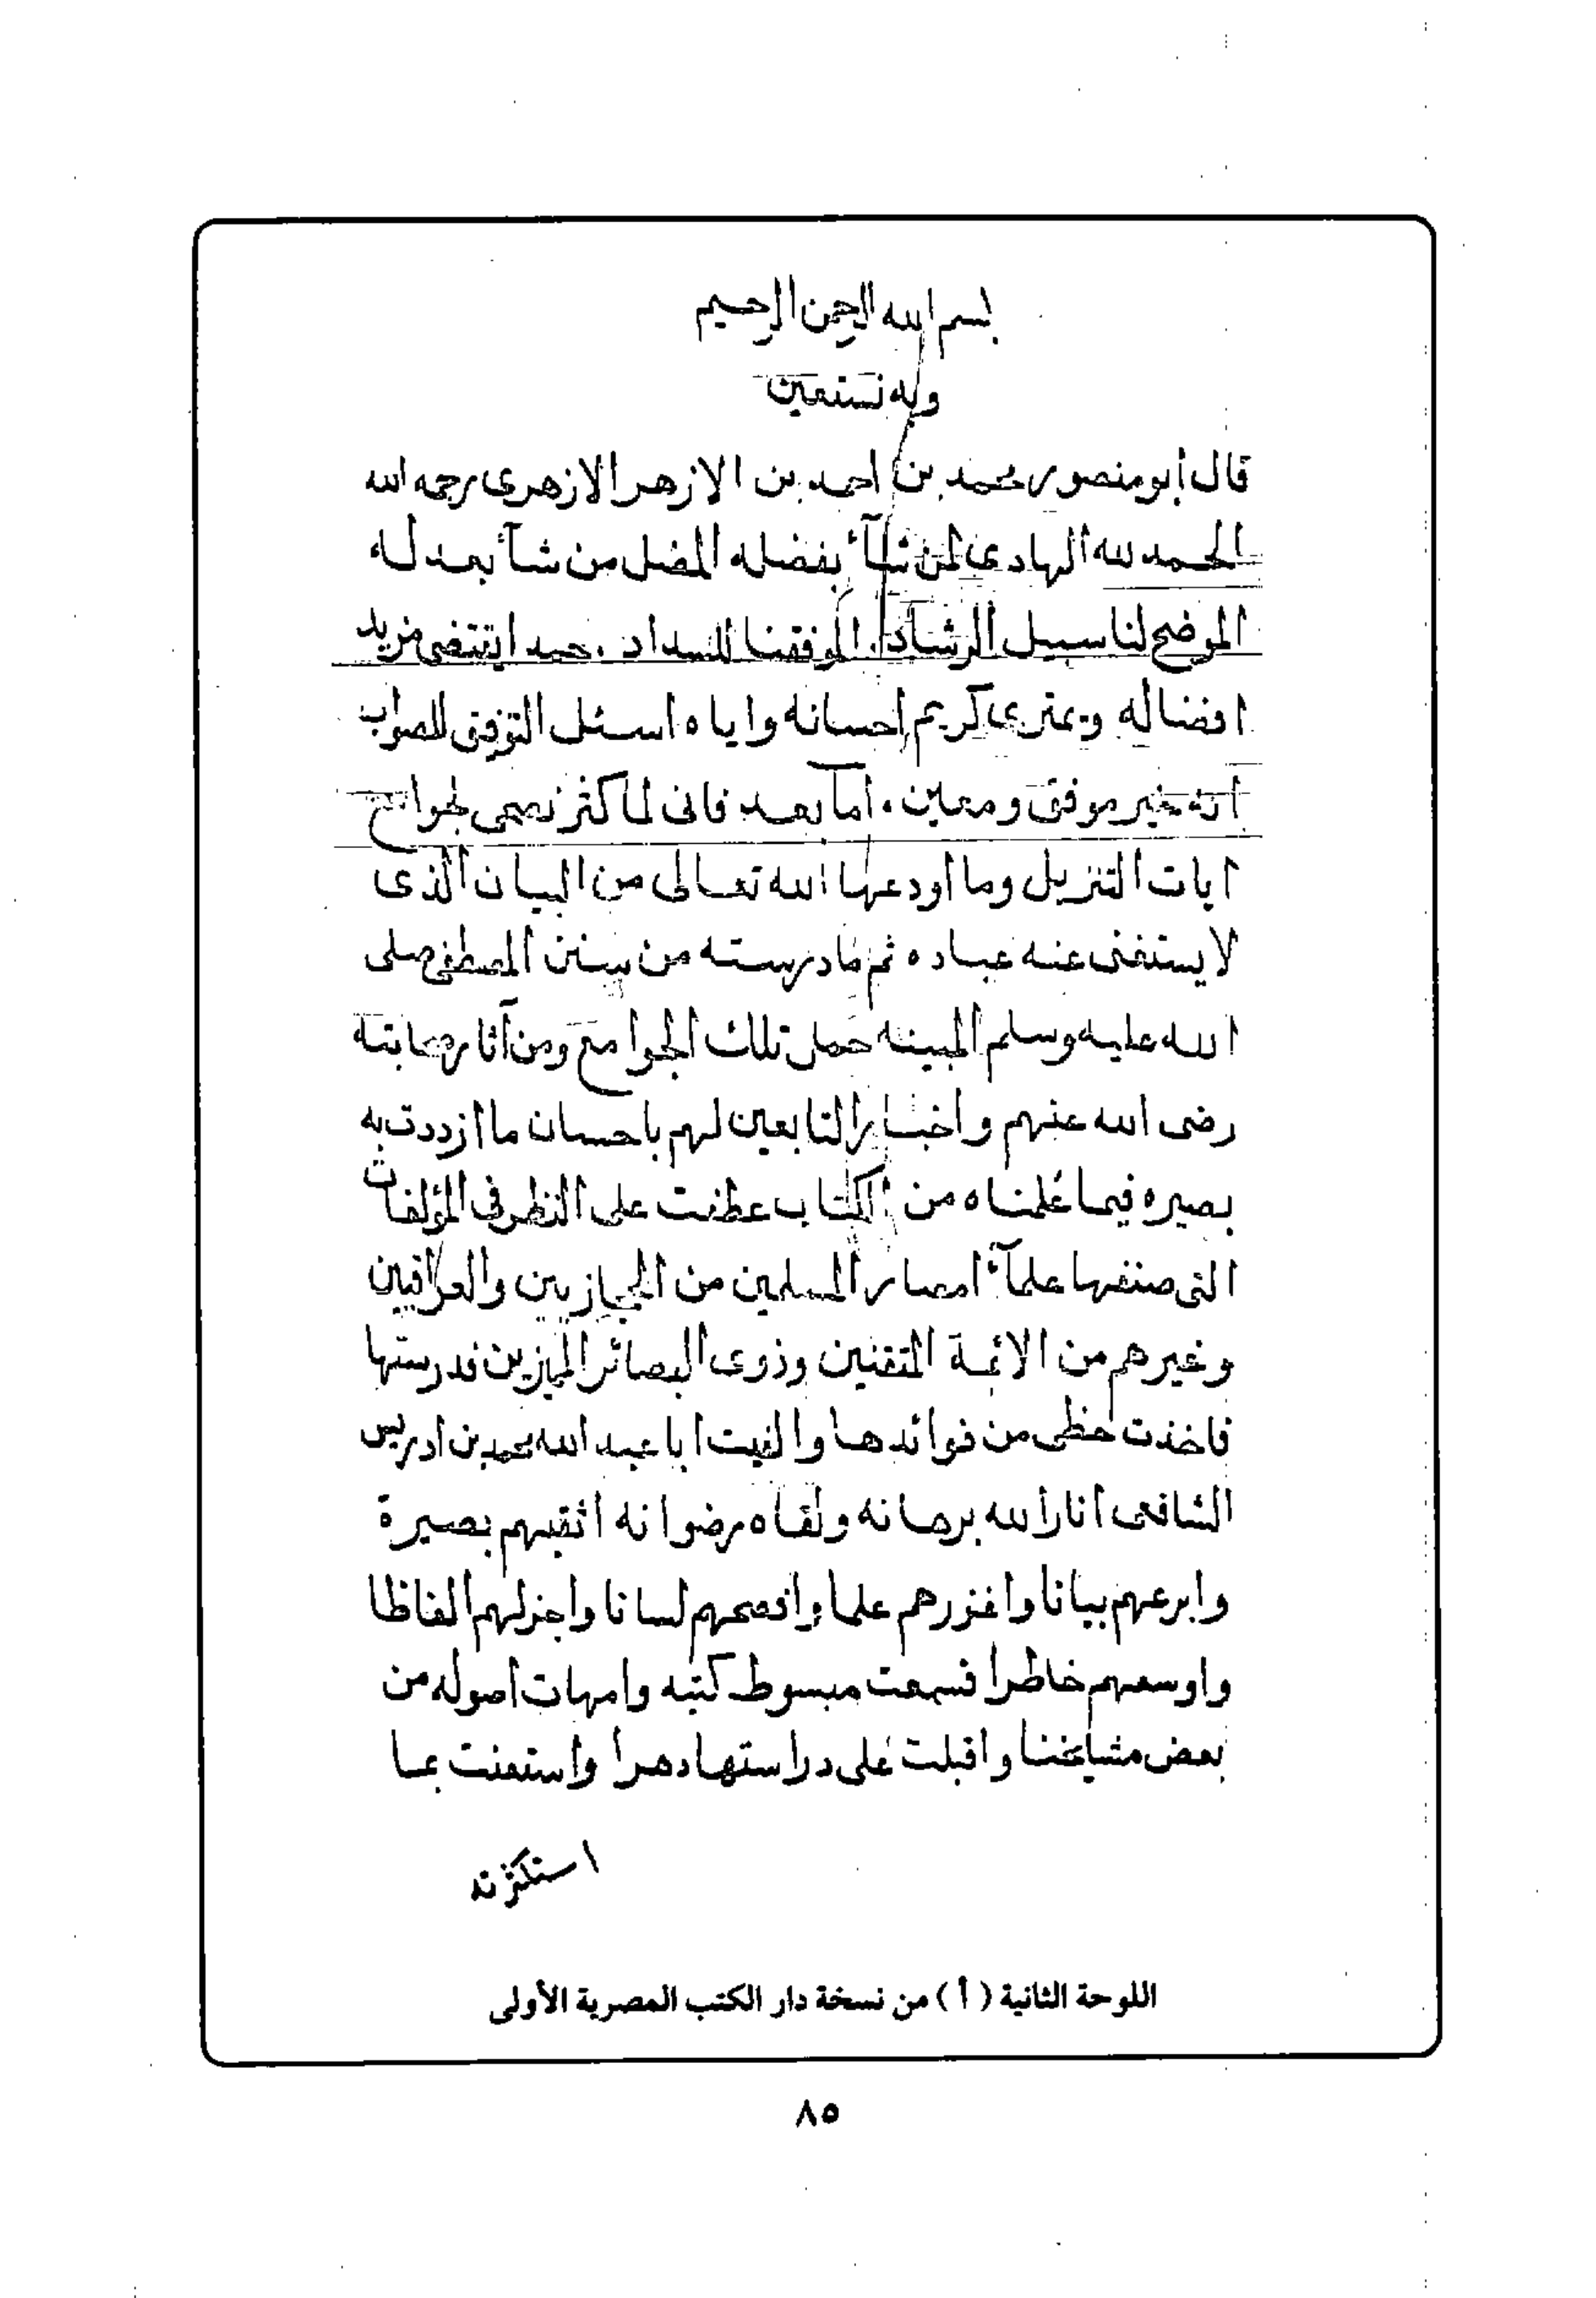 بسم الله الرحمن الرحيم
وبه نستعين
قال أبو منصور محمد بن احمد بن الازهر الازهرى رحمه الله
الحمد لله الهادى لمن شآء بفضله المضل من شآء بعدله
الموضح لنا سبيل الرشاد. الموفقنا للسداد. حمدا يقتضى مزيد
افضاله ويمترى كريم احسانه واياه اسئل التوفق للصواب
انه خير موفق ومعين، أما بعد فانى لما كثر تصحى لجوامع
ايات التنزيل وما أودعها الله تعالى من البيان الذى
لا يستغنى عنه عباده ثم ما درسته من سنن المصطفى صلى
الله عليه وسلم المبينه حمل تلك الجوامع ومن آثار صحابته
رضى الله عنهم وأخبار التابعين لهم باحسان ما ازددت به
بصيره فيما عُلمناه من الكتاب عطفت على النظر فى المؤلفات
التى صنفها علمآء امصار المسلمين من الحجازيين والعراقيين
وغيرهم من الائمة المتقنين وذوى البصائر المميزين فدرستها
فاخذت حظى من فوائدها والفيت ابا عبد الله محمد بن ادريس
الشافعى انار الله برهانه ولقاه رضوانه اثقبهم بصيرة
وابرعهم بيانا واغزرهم علما وافصحهم لسانا واجزلهم الفاظا
واوسعهم خاطرا فسمعت مبسوط كتبه وامهات اصوله من
بعض مشايخنا واقبلت على دراستها دهرا واستعنت بما
استكثرته
اللوحة الثانية (أ) من نسخة دار الكتب المصرية الأولى
٨٥